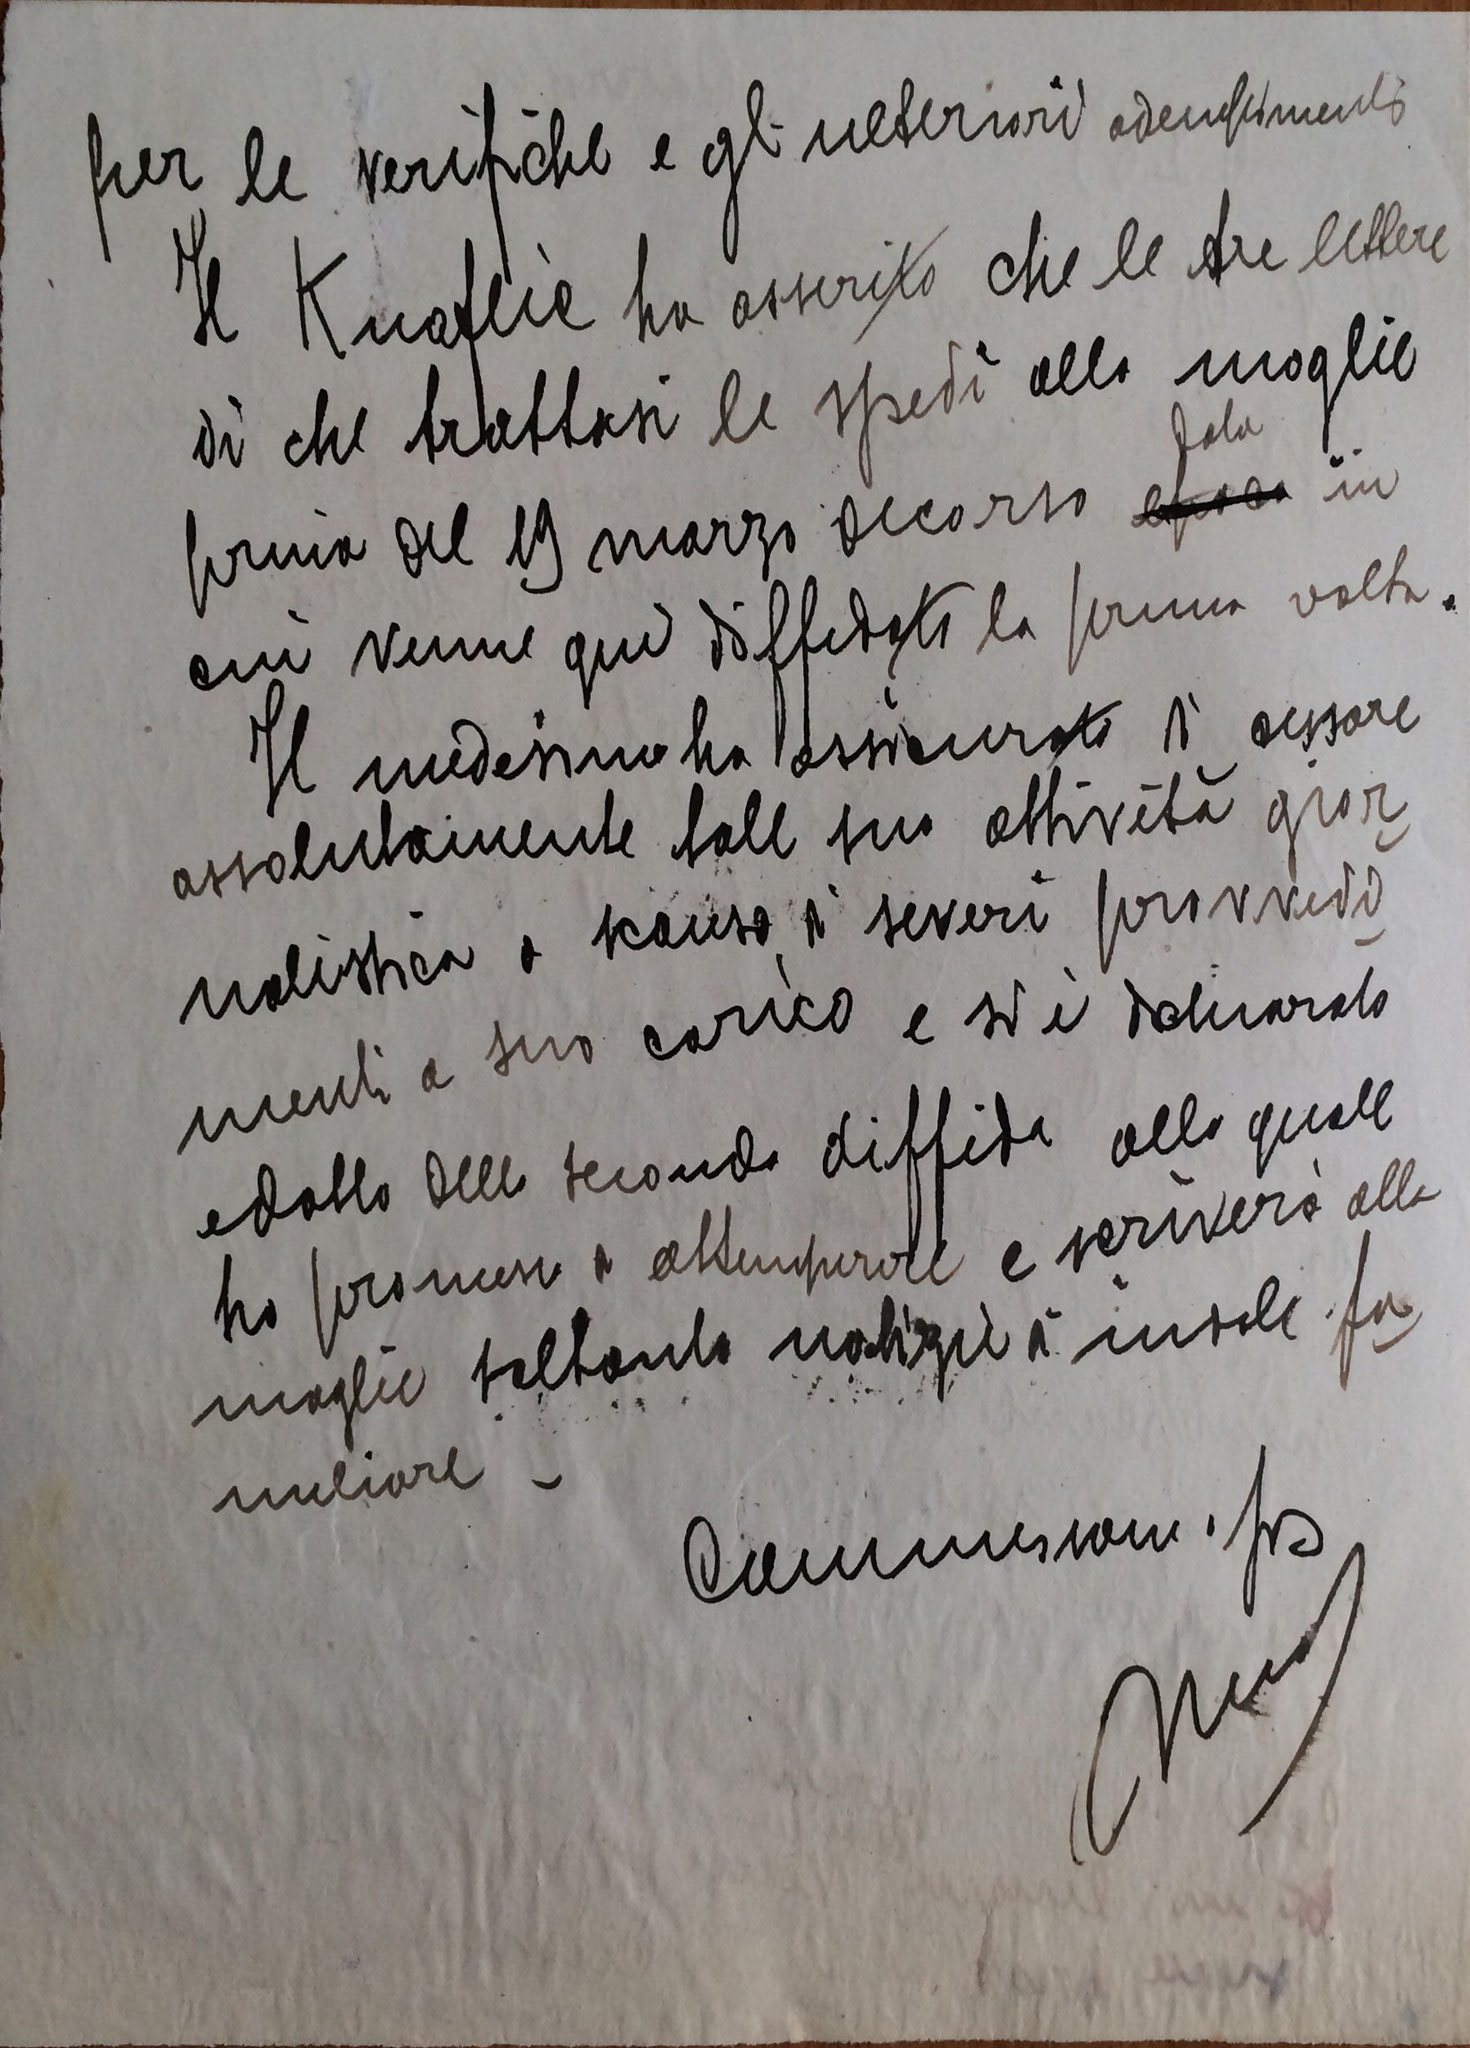 per le verifiche e gli ulteriori adempimenti
Il Knaflič ha asserito che le tre lettere
di che trattasi le spedì alla moglie
prima del 19 marzo decorso data in
cui venne quì diffidato la prima volta.
Il medesimo ha assicurato di cessare
assolutamente tale sua attività gior
nalistica a scanso di severi provvedi
menti a suo carico e si è dichiarato
edotto della seconda diffida alla quale
ha promesso di ottemperare e scriverà alla
moglie soltanto notizie di indole fa
miliare -
Commissario